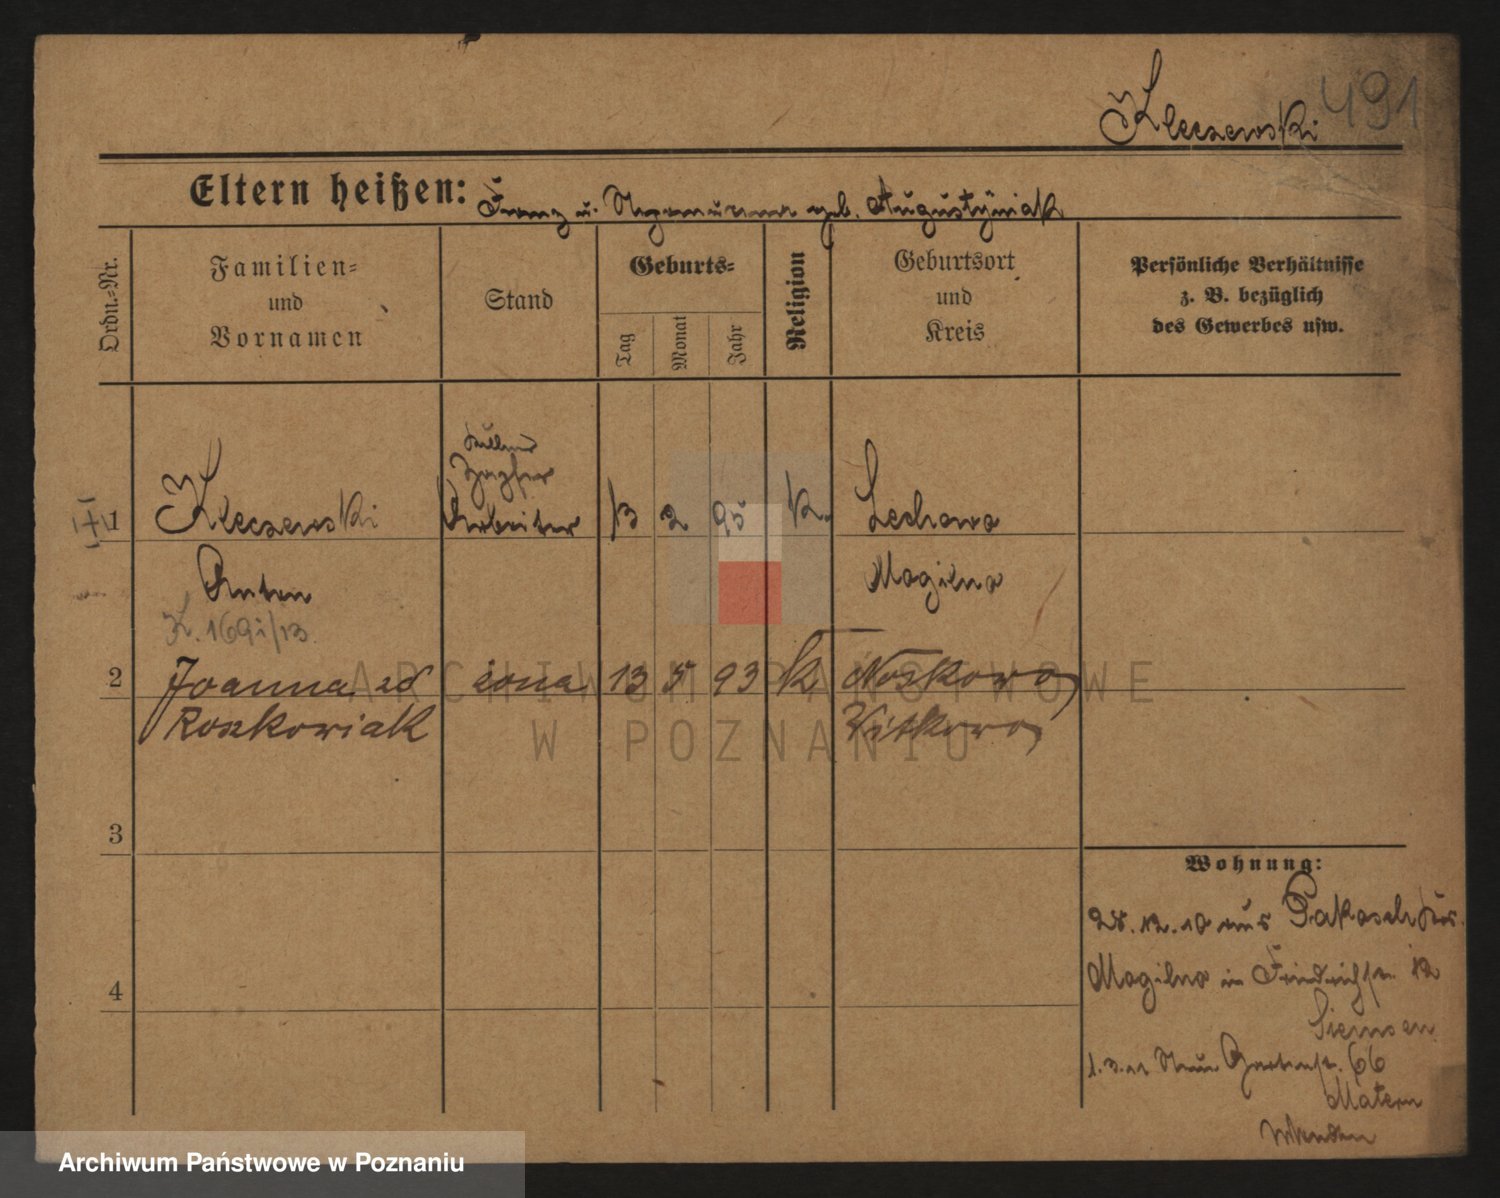 491
Kleczewski
Eltern heißen: Franz u. geb. Augustyniak
Ordn.-Nr.
Familien-
und
Vornamen
Stand
Geburts-
Tag
Monat
Jahr
Religion
Geburtsort
und
Kreis
Persönliche Verhältnisse
z. B. bezüglich
des Gewerbes usw.
Kellner
Zapfer
1 Kleczewski Arbeiter 13 2 95 k. Lechowo
Anton Mogilno
K. 169i/13.
2 Joanna zd żona 13 5 93 k Noskowo
Roszkowiak Witkowo
3
4
Wohnung:
28.12.10 aus Pakosch Krs.
Mogilno in Friedrichstr. 12
Siemsen
1.3.11 Neue Gartenstr. 66
Matern
ARCHIWUM PAŃSTWOWE
W POZNANIU
Archiwum Państwowe w Poznaniu